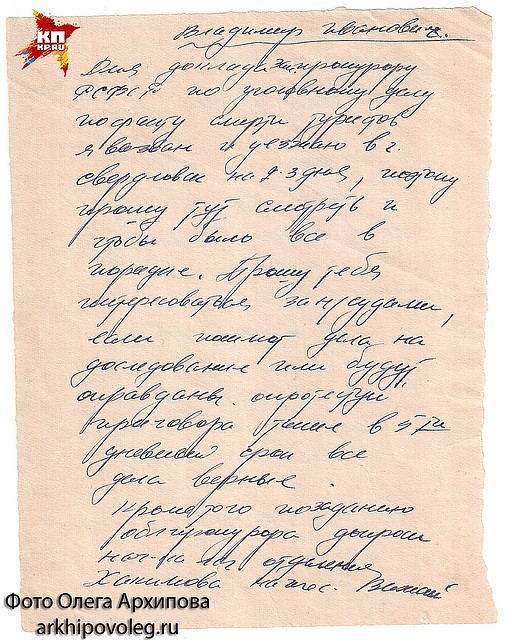 КП
KP.RU
Владимир Иванович.
Для доклада зам. прокурору
РСФСР по уголовному делу
по факту смерти туристов
я вызван и уезжаю в г.
свердловск на 2-3 дня, поэтому
прошу тут смотреть и
чтобы было все в
порядке. Прошу тебя
интересоваться за н/судами,
если пошлют дела на
доследование или будут
оправданы. опротестуй
приговора только в 5ти
дневный срок все
дела верные.
Кроме того по заданию
облпрокурора допроси
нач-ка отделения
Хакимова на пос. Вижай
Фото Олега Архипова
arkhipovoleg.ru